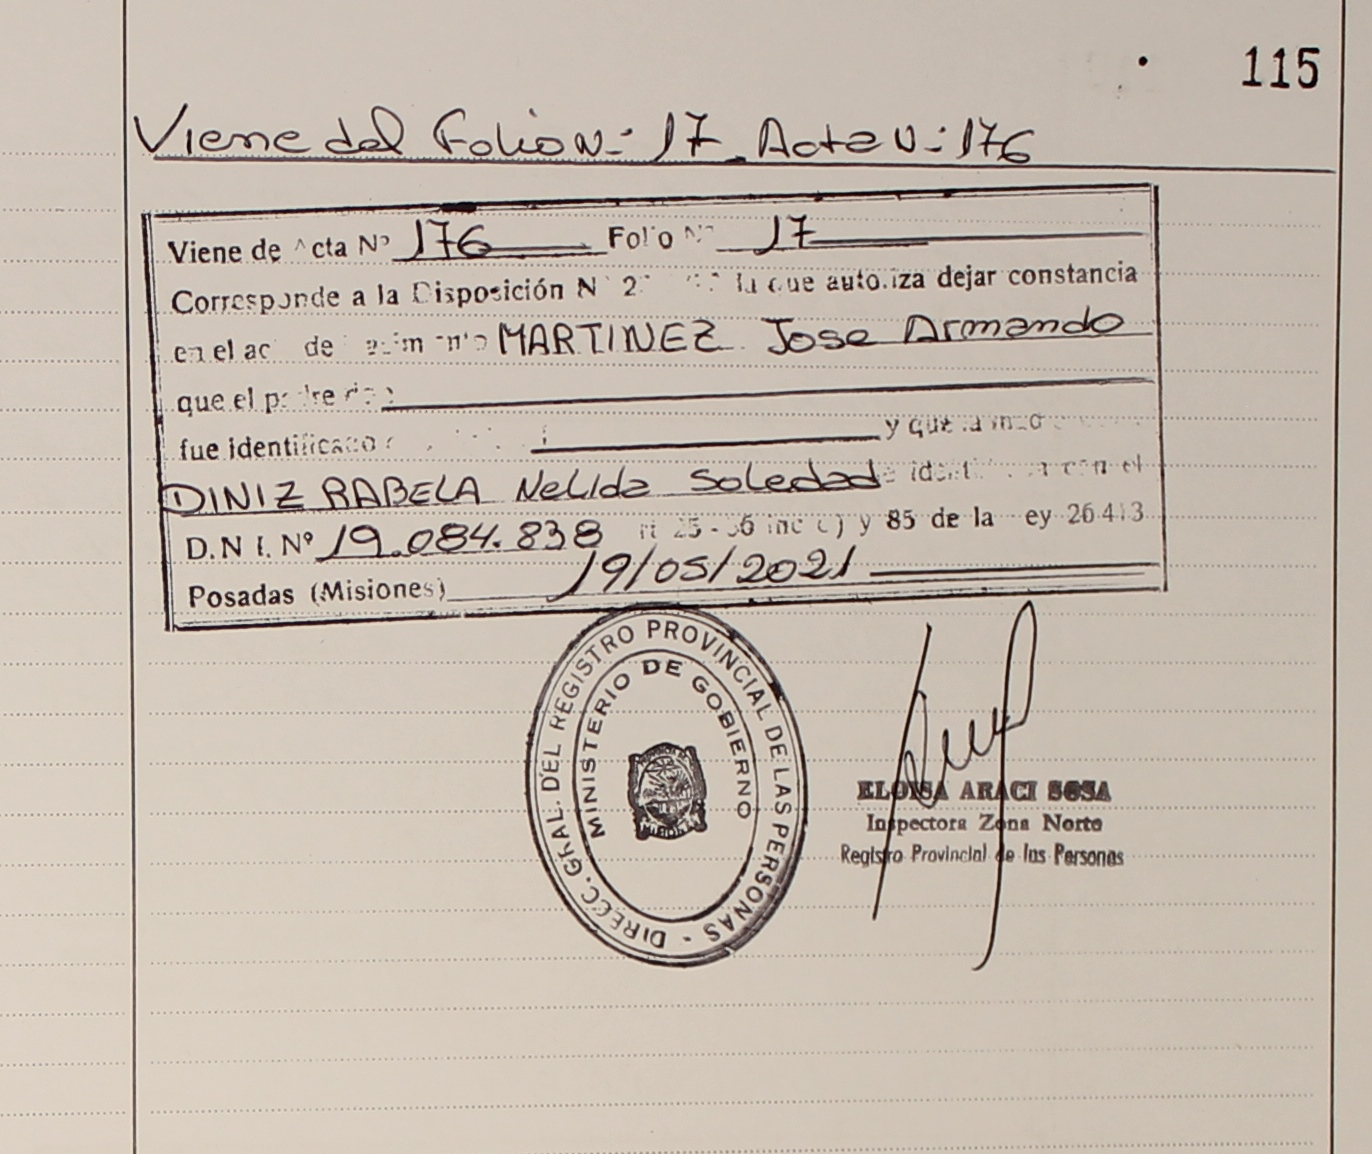 115
Viene del Folio N- 17 Acta N- 176
Viene de Acta Nº 176 Folio Nº 17
Corresponde a la Disposición N 2 la que autoriza dejar constancia
en el ac de MARTINEZ Jose Armando
que el padre
fue identificado y que la
DINIZ RABELA Nelida Soledad con el
D.N.I. Nº 19.084.838 y 85 de la ey 26413
Posadas (Misiones) 19/05/2021
DIRECC. GRAL. DEL REGISTRO PROVINCIAL DE LAS PERSONAS -
MINISTERIO DE GOBIERNO
ELOISA ARACI SOSA
Inspectora Zona Norte
Registro Provincial de las Personas